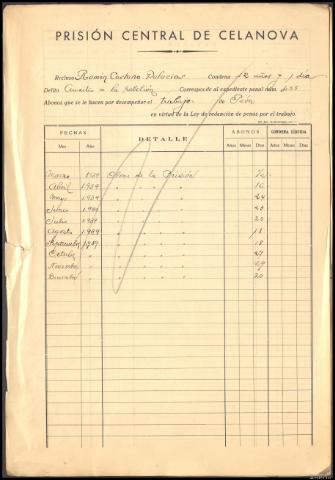 PRISIÓN CENTRAL DE CELANOVA
Recluso Ramón Castaño Palacios Condena 12 años y 1 día
Delito Auxilio a la rebelión Corresponde al expediente penal núm. 455
Abonos que se le hacen por desempeñar el trabajo de Peón
en virtud de la Ley de redención de penas por el trabajo.
FECHAS DETALLE ABONOS CONDENA LÍQUIDA
Mes Año Años Meses Días Años Meses Días
Marzo 1939 Obras de la Prisión
Abril 1939 " " " " 16
Mayo 1939 " " " " 24
Junio 1939 " " " "
Julio 1939 " " " " 20
Agosto 1939 " " " " 18
Septiembre 1939 " " " " 18
Octubre " " " " " 27
Noviembre " " " " " 29
Diciembre " " " " " 20